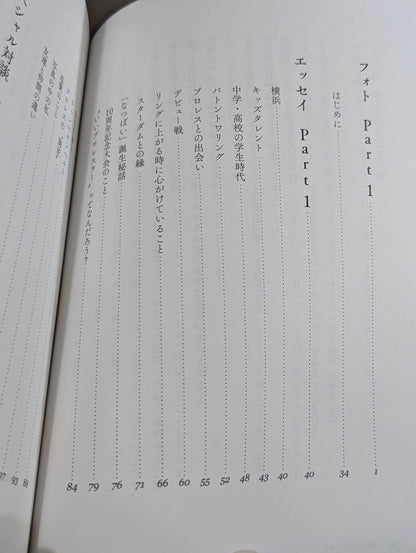 フォト Part 1 1
はじめに 34
エッセイ Part 1 40
横浜 40
キッズタレント 43
中学・高校の学生時代 48
バトントワリング 52
プロレスとの出会い 55
デビュー戦 60
リングに上がる時に心がけていること 66
スターダムとの縁 71
「なつぽい」誕生秘話 76
10周年記念大会のこと 79
“いいプロレスラー”ってなんだろう？ 84
シャル対談
88
93
97